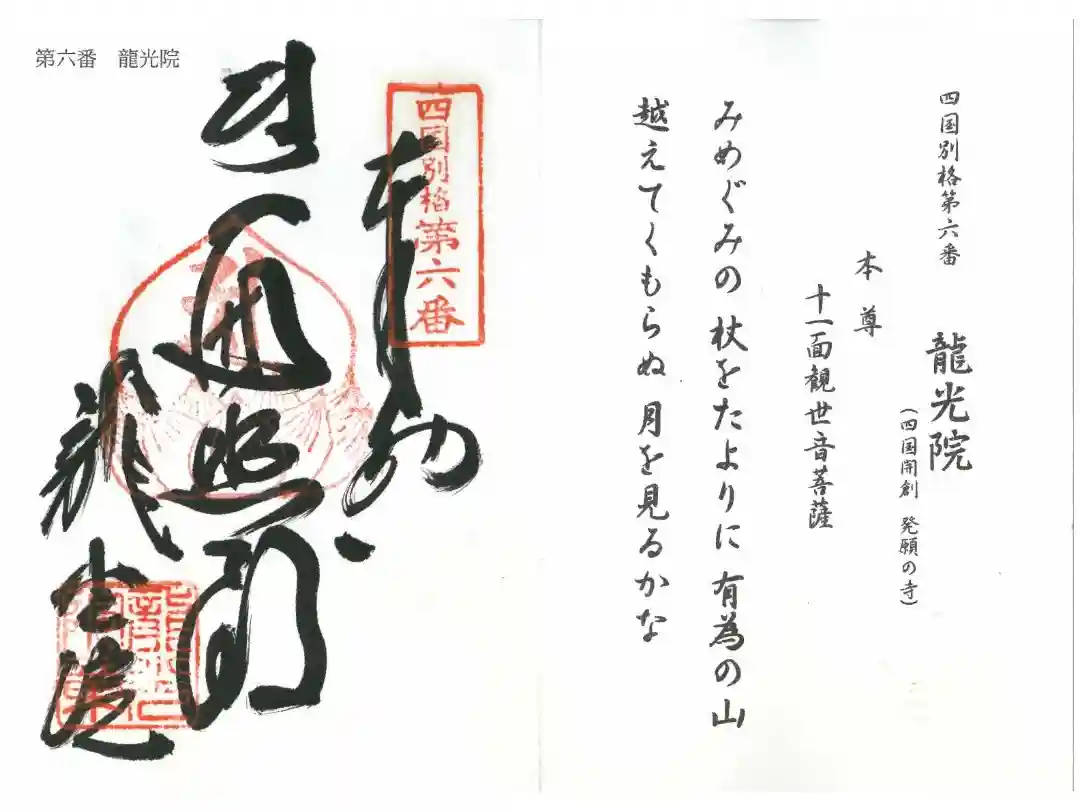 第六番　龍光院
四国別格第六番
奉納
遍照閣
龍光院
四国別格第六番　龍光院
(四国開創　発願の寺)
本尊
十一面観世音菩薩
みめぐみの　杖をたよりに　有為の山
越えてくもらぬ　月を見るかな